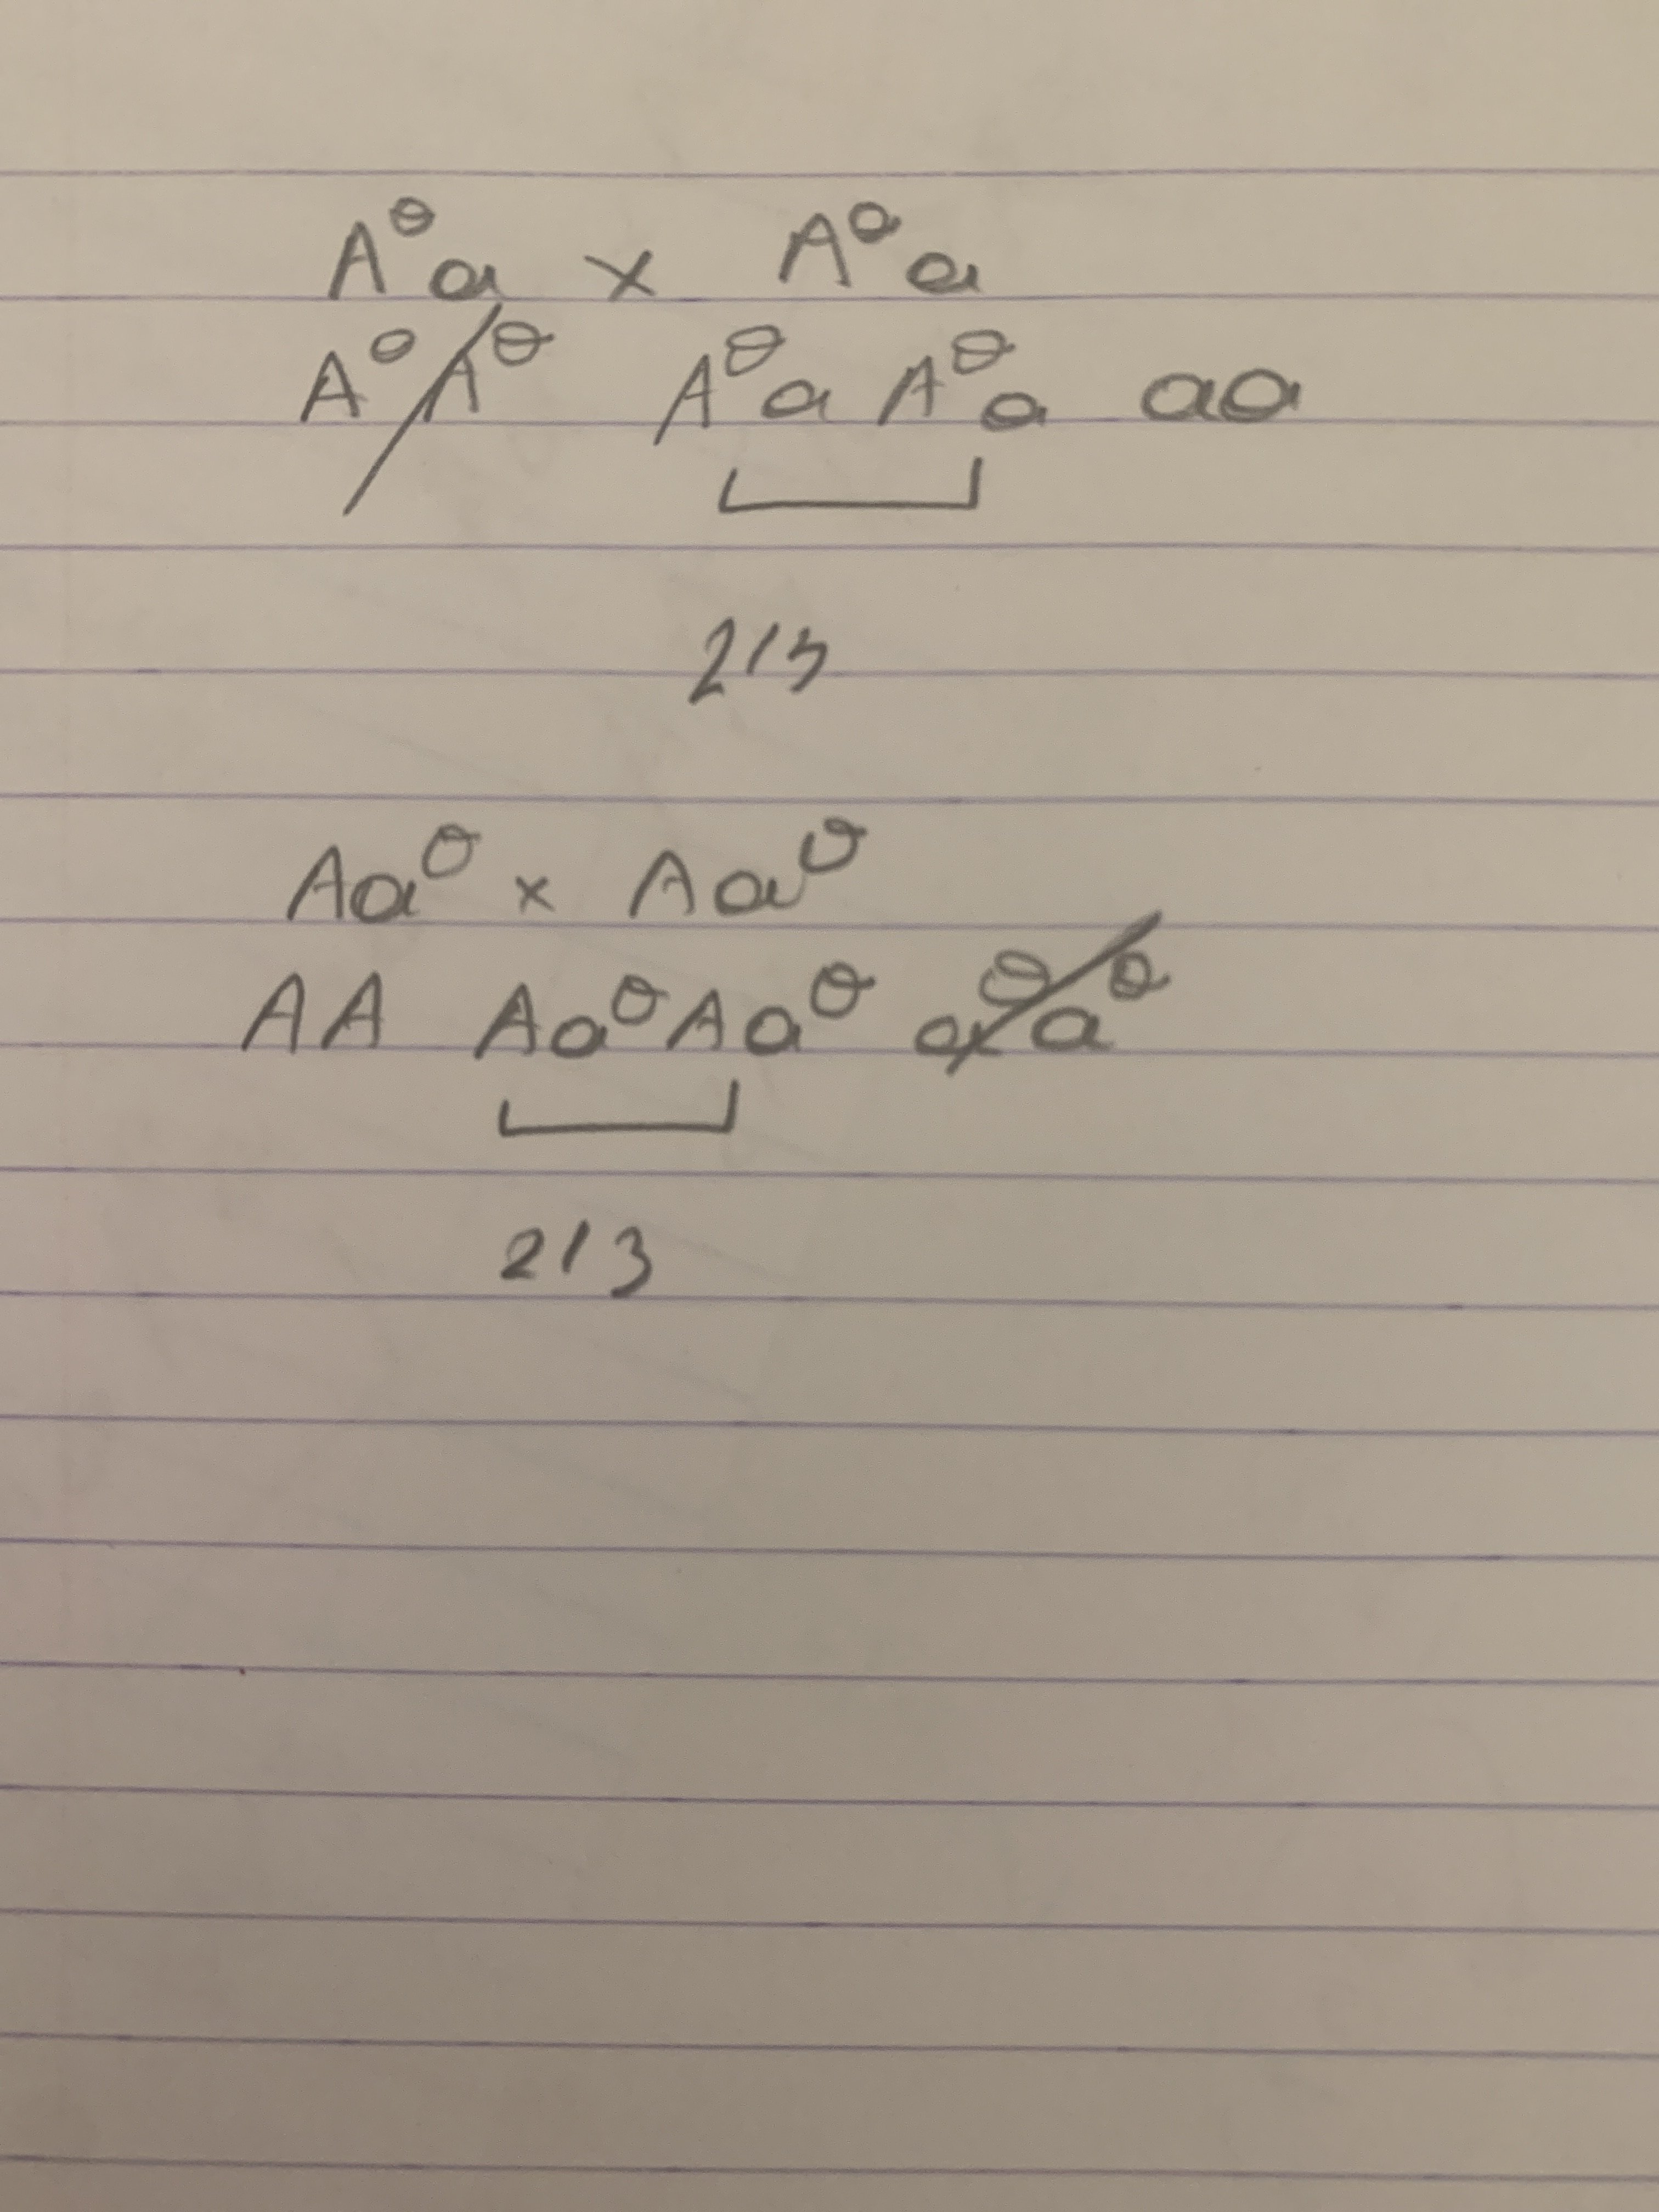 Aᶿa x Aᶿa
AᶿAᶿ AᶿaAᶿa aa
2/3
Aaᶿ x Aaᶿ
AA AaᶿAaᶿ aᶿaᶿ
2/3